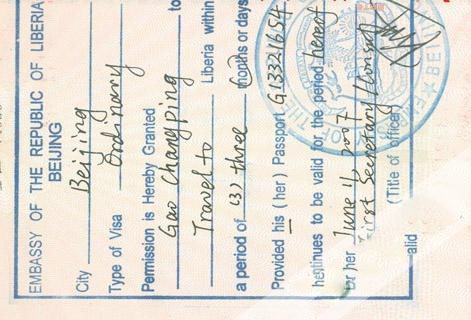 EMBASSY OF THE REPUBLIC OF LIBERIA
BEIJING
City Beijing
Type of Visa Ordinary
Permission is Hereby Granted
Gao Changping to
Travel to Liberia within
a period of (3) three months or days
Provided his (her) Passport G13321654
continues to be valid for the period hereof
or her June 11, 2007
First Secretary/Consul
(Title of officer)
alid